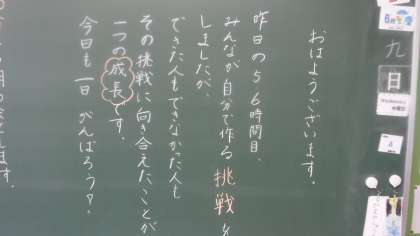 おはようございます。
昨日の5 6時間目、
みんなが自分で作る挑戦を
しましたが、
できた人もできなかった人も
その挑戦に向き合えたことが
一つの成長です。
今日も一日 がんばろう？
6月
九
日
Wednesday
水曜日